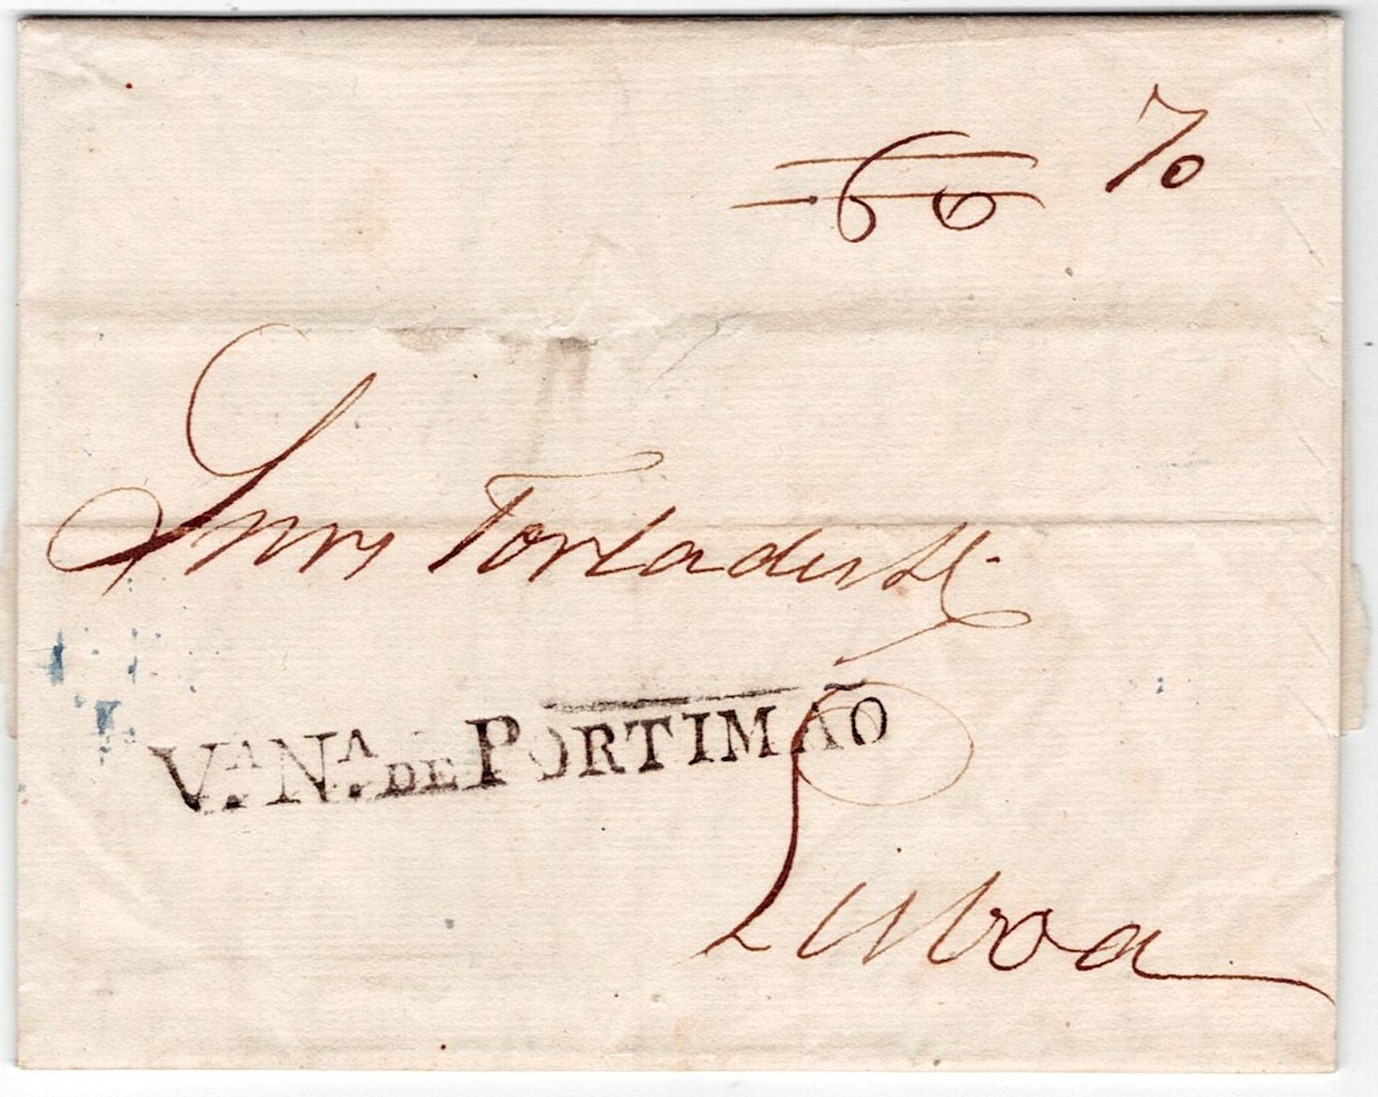 70
60
Snrs Torlades & C.
V.A N.A DE PORTIMÃO
Lisboa